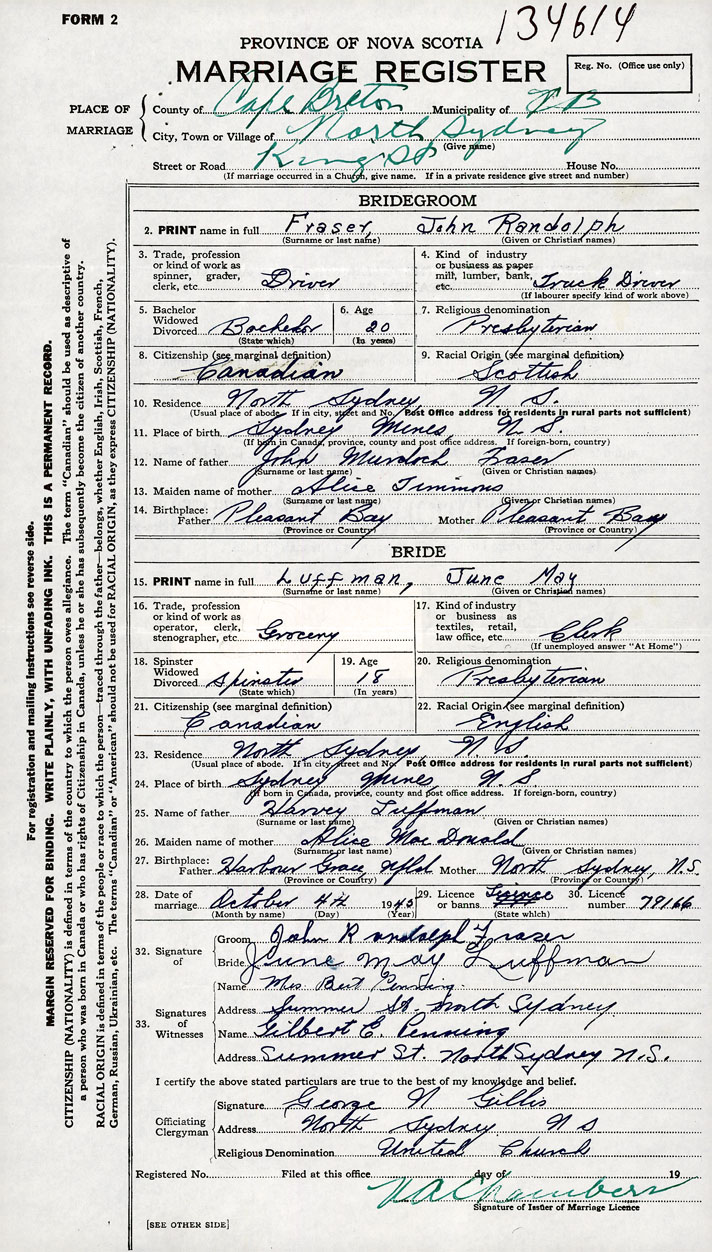 FORM 2
134614
PROVINCE OF NOVA SCOTIA
MARRIAGE REGISTER
Reg. No. (Office use only)
PLACE OF MARRIAGE
County of Cape Breton Municipality of
City, Town or Village of North Sydney
(Give name)
Street or Road King St House No.
(If marriage occurred in a Church, give name. If in a private residence give street and number)
BRIDEGROOM
2. PRINT name in full Fraser, John Randolph
(Surname or last name) (Given or Christian names)
3. Trade, profession or kind of work as spinner, grader, clerk, etc. Driver
4. Kind of industry or business as paper mill, lumber, bank, etc. Truck Driver
(If labourer specify kind of work above)
5. Bachelor Widowed Divorced Bachelor
(State which)
6. Age 20
(In years)
7. Religious denomination
Presbyterian
8. Citizenship (see marginal definition)
Canadian
9. Racial Origin (see marginal definition)
Scottish
10. Residence North Sydney, N S.
(Usual place of abode. If in city, street and No. Post Office address for residents in rural parts not sufficient)
11. Place of birth Sydney Mines, N. S.
(If born in Canada, province, county and post office address. If foreign-born, country)
12. Name of father John Murdoch Fraser
(Surname or last name) (Given or Christian names)
13. Maiden name of mother Alice Timmons
(Surname or last name) (Given or Christian names)
14. Birthplace: Father Pleasant Bay Mother Pleasant Bay
(Province or Country) (Province or Country)
BRIDE
15. PRINT name in full Luffman, June May
(Surname or last name) (Given or Christian names)
16. Trade, profession or kind of work as operator, clerk, stenographer, etc. Grocery
17. Kind of industry or business as textiles, retail, law office, etc. Clerk
(If unemployed answer "At Home")
18. Spinster Widowed Divorced Spinster
(State which)
19. Age 18
(In years)
20. Religious denomination
Presbyterian
21. Citizenship (see marginal definition)
Canadian
22. Racial Origin (see marginal definition)
English
23. Residence North Sydney, N S
(Usual place of abode. If in city, street and No. Post Office address for residents in rural parts not sufficient)
24. Place of birth Sydney Mines, N. S.
(If born in Canada, province, county and post office address. If foreign-born, country)
25. Name of father Harvey Luffman
(Surname or last name) (Given or Christian names)
26. Maiden name of mother Alice Mac Donald
(Surname or last name) (Given or Christian names)
27. Birthplace: Father Harbour Grace, Nfld Mother North Sydney, N.S.
(Province or Country) (Province or Country)
28. Date of marriage October 4th 1945
(Month by name) (Day) (Year)
29. Licence or banns
(State which)
30. Licence number 78166
32. Signature of
Groom John Randolph Fraser
Bride June May Luffman
33. Signatures of Witnesses
Name Mrs. Bert Penning
Address Summer St. North Sydney
Name Gilbert E. Penning
Address Summer St. North Sydney N.S.
I certify the above stated particulars are true to the best of my knowledge and belief.
Officiating Clergyman
Signature George N Gillis
Address North Sydney N S
Religious Denomination United Church
Registered No. Filed at this office day of 19
Signature of Issuer of Marriage Licence
[SEE OTHER SIDE]
For registration and mailing instructions see reverse side.
MARGIN RESERVED FOR BINDING. WRITE PLAINLY, WITH UNFADING INK. THIS IS A PERMANENT RECORD.
CITIZENSHIP (NATIONALITY) is defined in terms of the country to which the person owes allegiance. The term "Canadian" should be used as descriptive of
a person who was born in Canada or who has rights of Citizenship in Canada, unless he or she has subsequently become the citizen of another country.
RACIAL ORIGIN is defined in terms of the people or race to which the person—traced through the father—belongs, whether English, Irish, Scottish, French,
German, Russian, Ukrainian, etc. The terms "Canadian" or "American" should not be used for RACIAL ORIGIN, as they express CITIZENSHIP (NATIONALITY).